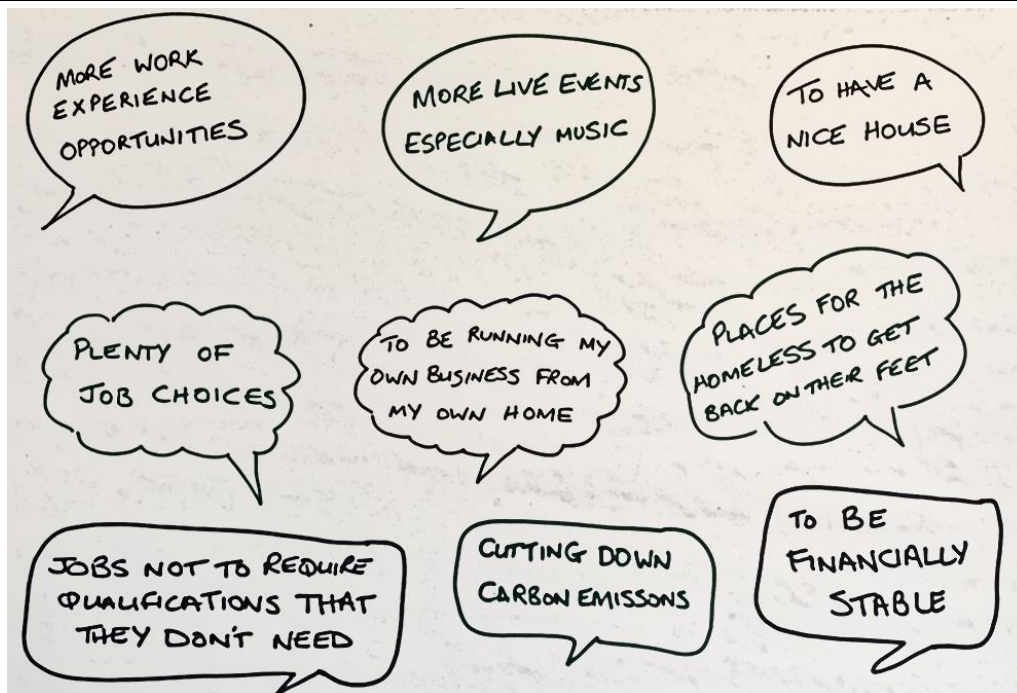 MORE WORK
EXPERIENCE
OPPORTUNITIES
MORE LIVE EVENTS
ESPECIALLY MUSIC
TO HAVE A
NICE HOUSE
PLENTY OF
JOB CHOICES
TO BE RUNNING MY
OWN BUSINESS FROM
MY OWN HOME
PLACES FOR THE
HOMELESS TO GET
BACK ON THEIR FEET
JOBS NOT TO REQUIRE
QUALIFICATIONS THAT
THEY DON'T NEED
CUTTING DOWN
CARBON EMISSONS
TO BE
FINANCIALLY
STABLE